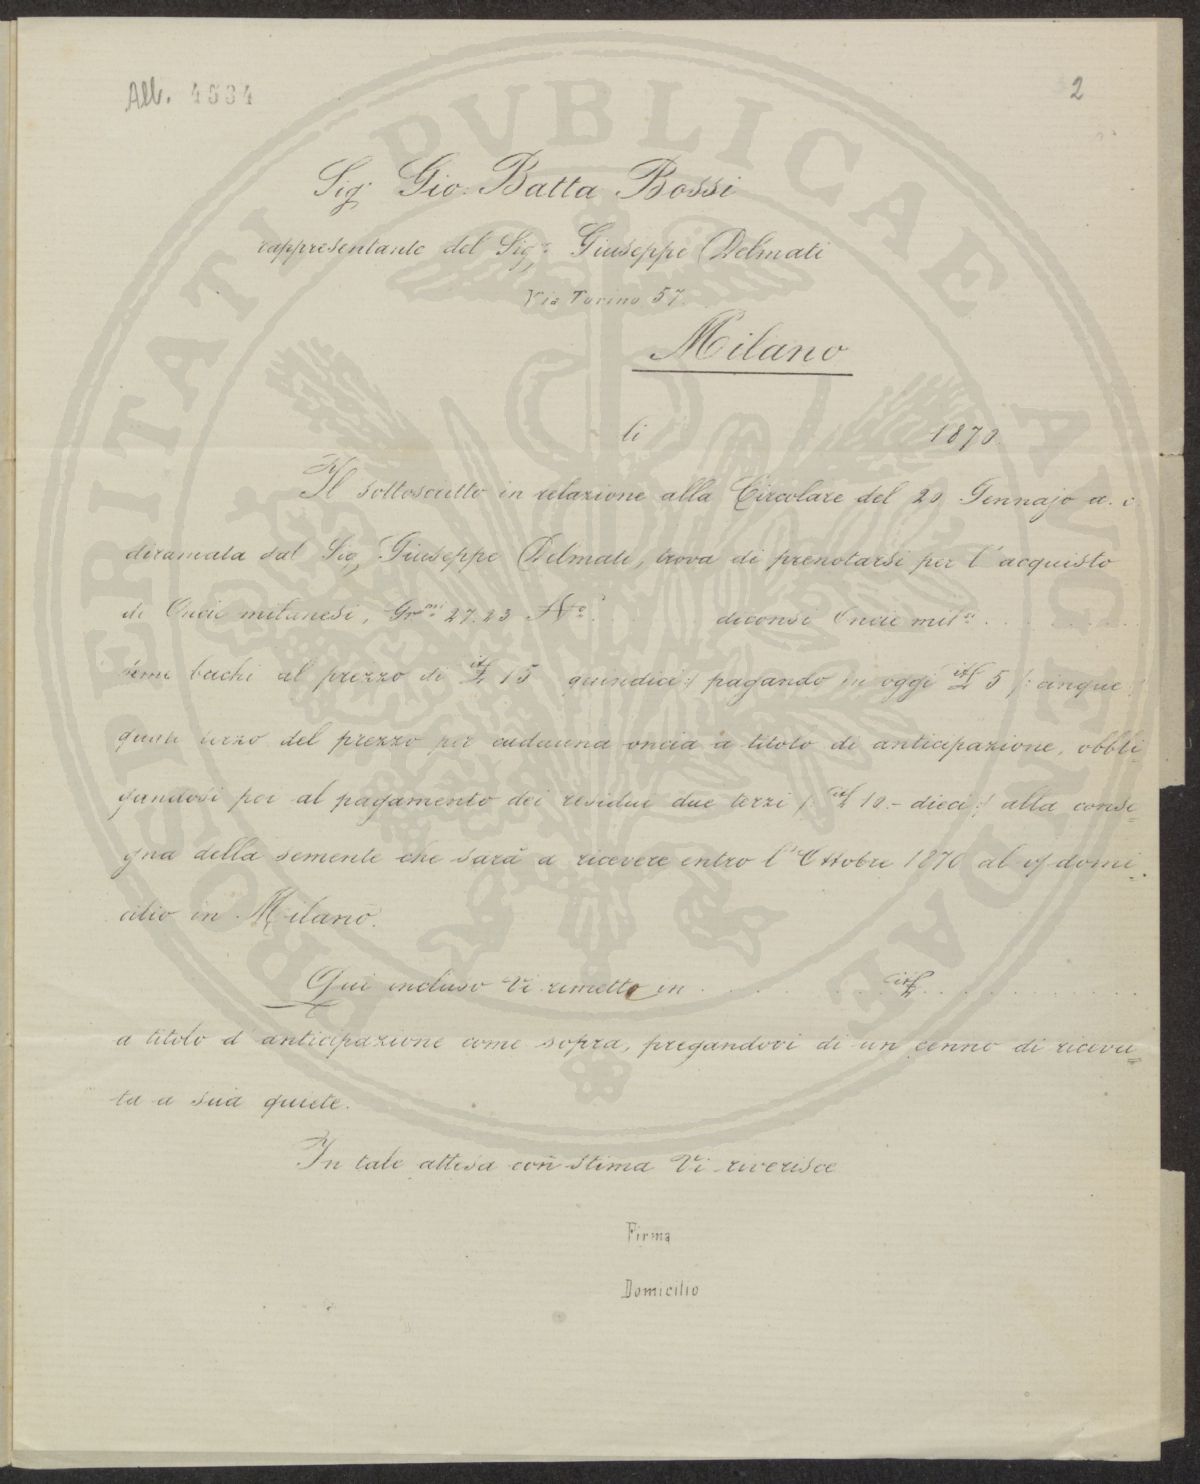 All. 4634
2
Sig. Gio. Batta Bossi
rappresentante del Sigr. Giuseppe Delmati
Via Torino 57.
Milano
li 1870.
Il sottoscritto in relazione alla Circolare del 20 Gennajo a. c.
diramata dal Sig. Giuseppe Delmati, trova di prenotarsi per l'acquisto
di Oncie milanesi, Grmi 27.23 No. diconsi Oncie mile.
seme bachi al prezzo di itL 15 quindici :/ pagando in oggi itL 5 /: cinque :/
quale terzo del prezzo per cadauna oncia a titolo di anticipazione, obbli-
gandosi poi al pagamento dei residui due terzi /: itL 10.- dieci :/ alla conse=
gna della semente che sarà a ricevere entro l'Ottobre 1870 al domi=
cilio in Milano.
Qui incluso Vi rimetto in itL
a titolo d'anticipazione come sopra, pregandovi di un cenno di ricevu=
ta a sua quiete.
In tale attesa con stima Vi riverisce
Firma
Domicilio
PROSPERITATI PVBLICAE AVGENDAE